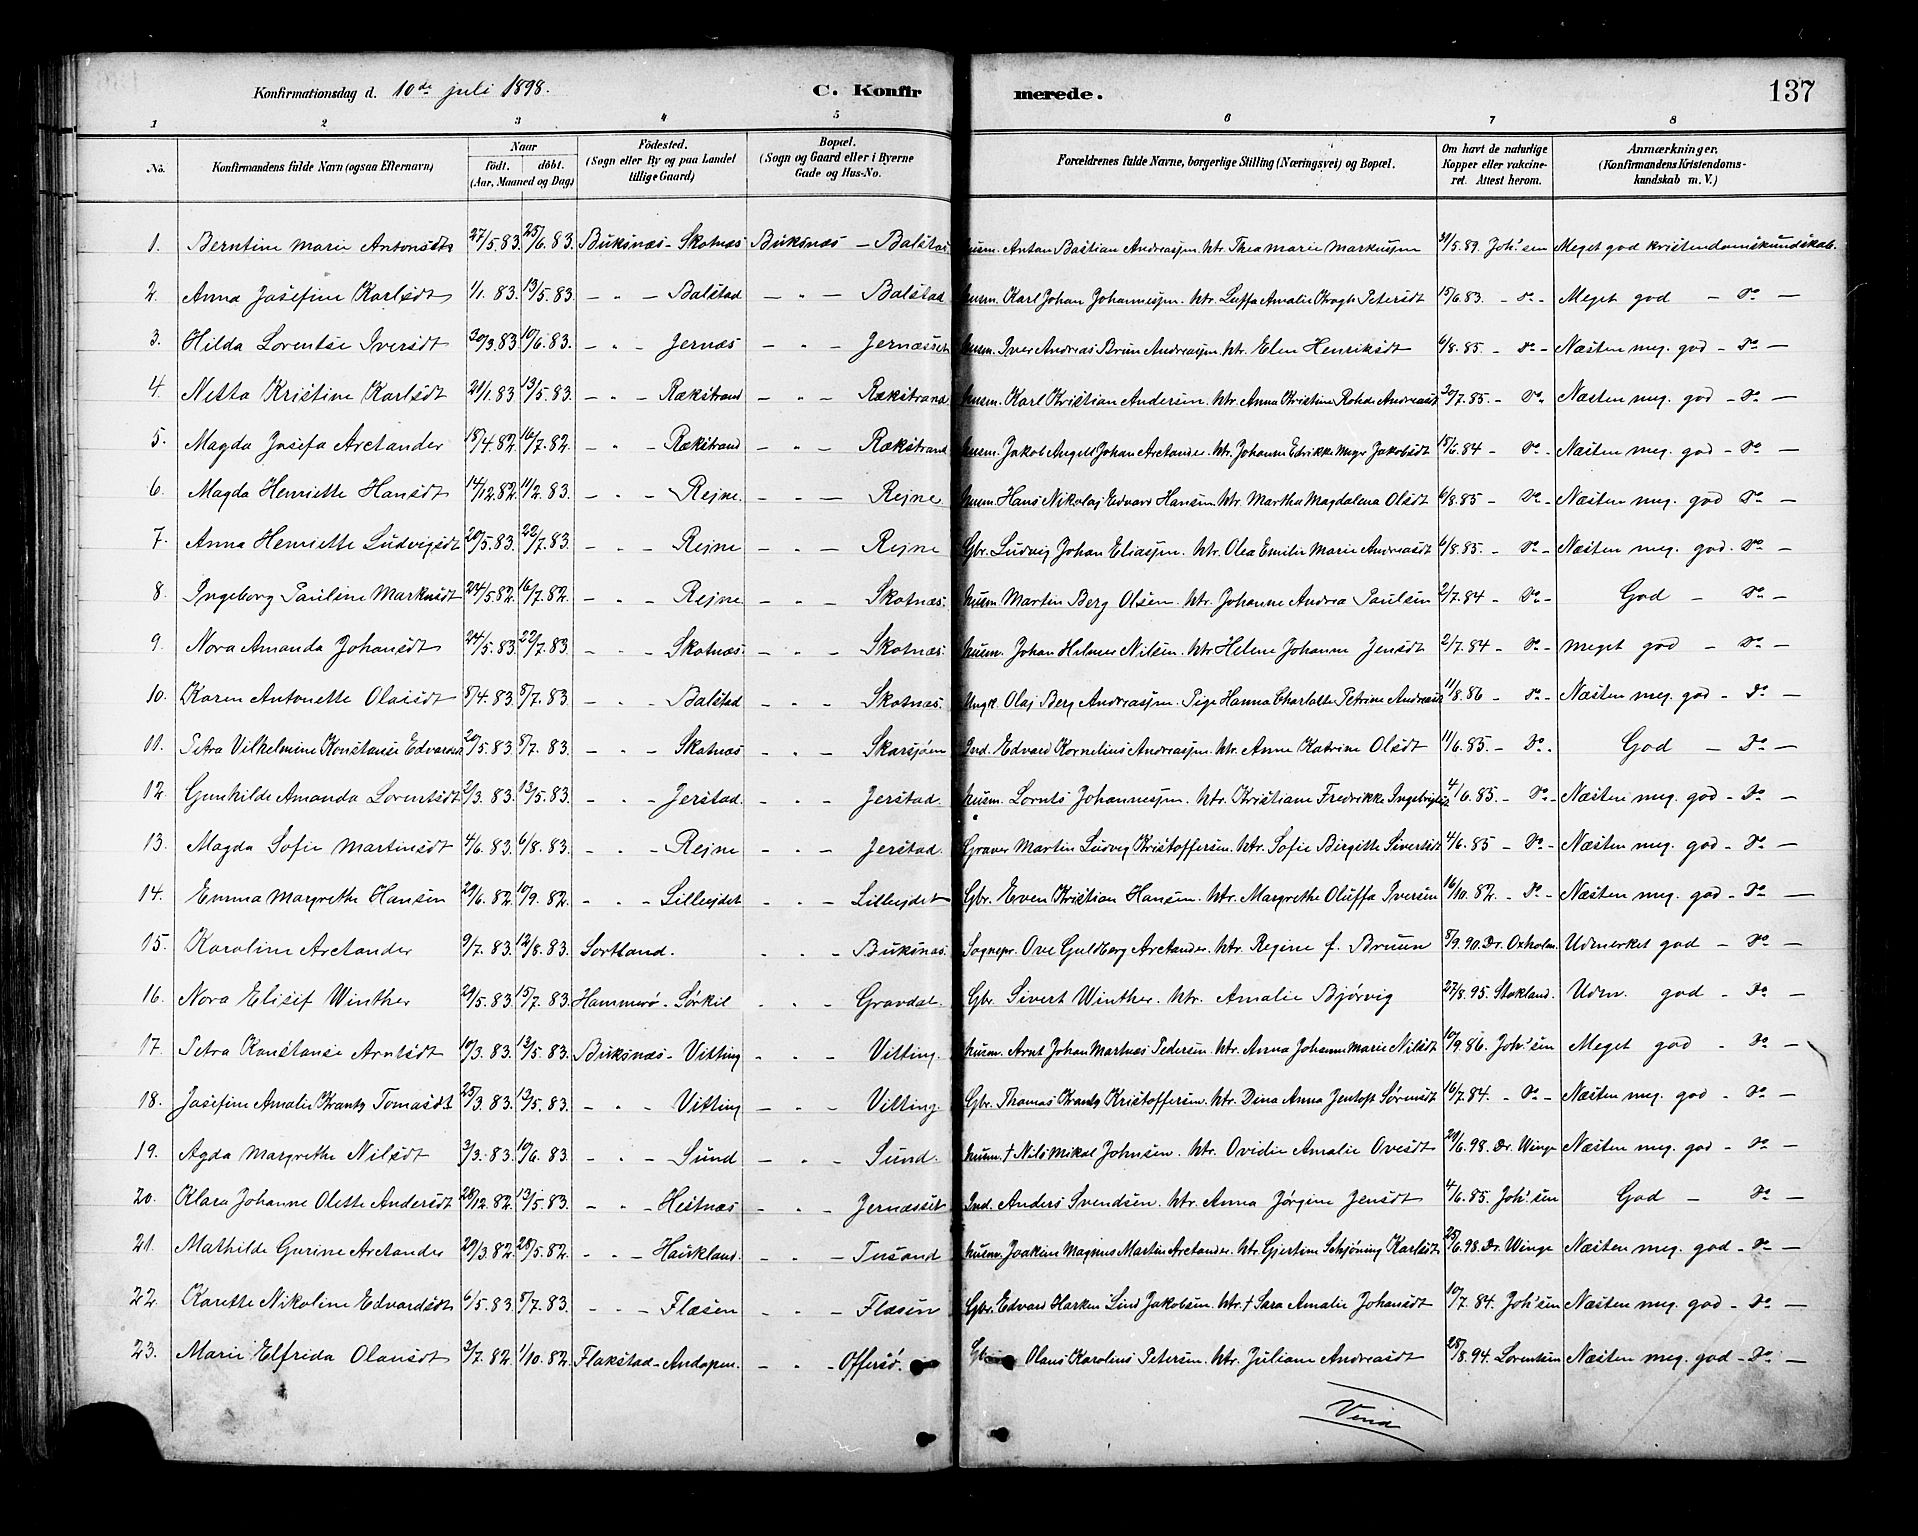 Konfirmationsdag d. 10de juli 1898. C. Konfirmerede. 137
1 2 3 4 5 6 7 8
No. Konfirmandens fulde Navn (ogsaa Efternavn) Naar födt. döbt. (Aar, Maaned og Dag) Födested. (Sogn eller By og paa Landet tillige Gaard) Bopæl. (Sogn og Gaard eller i Byerne Gade og Hus-No. Forældrenes fulde Navne, borgerlige Stilling (Næringsvei) og Bopæl. Om havt de naturlige Kopper eller vakcineret. Attest herom. Anmærkninger, (Konfirmandens Kristendomskundskab m. V.)
1. Berntine Marie Antonsdt 27/5.83. 25/6.83. Buksnæs - Skotnæs Buksnæs - Balstad Husm. Anton Bastian Andreassen. Htr. Thea Marie Markussen 31/5.89. Joh!sen Meget god kristendomskundskab.
2. Anna Josefine Karlsdt 1/1.83. 13/5.83. - " - Balstad - " - Balstad Husm. Karl Johan Johannessen. Htr. Luffa Amalie Krogh Petersdt 15/6.83. - do - Meget god - do -
3. Hilda Lorentse Iversdt 30/3.83. 10/6.83. - " - Jernæs - " - Jernæsset Husm. Iver Andreas Brun Andreassen. Htr. Elen Henriksdt 6/8.85. - do - Næsten meg. god - do -
4. Netta Kristine Karlsdt 21/1.83. 13/5.83. - " - Rækstrand - " - Rækstrand Husm. Karl Kristian Andersen. Htr. Anna Kristine Rohde Andreasdt 30/7.85. - do - Næsten meg. god - do -
5. Magda Josefa Arctander 18/4.82. 16/7.82. - " - Rækstrand - " - Rækstrand Husm. Jakob Angell Johan Arctander. Htr. Johanna Edrikke Meyer Jakobsdt 15/6.84 - do - Næsten meg. god - do -
6. Magda Henriette Hansdt 14/12.82. 11/2.83. - " - Rejne. - " - Rejne Husm. Hans Nikolaj Edvard Hansen. Htr. Martha Magdalena Olsdt 6/8.85 - do - Næsten meg. god do -
7. Anna Henriette Ludvigsdt 20/5.83. 22/7.83. - " - Rejne - " - Rejne Gbr. Ludvig Johan Eliassen. Htr. Olea Emilie Marie Andreasdt 6/8.85. - do - Næsten meg. god. do -
8. Ingeborg Pauline Markusdt 24/5.82. 16/7.82. - " - Rejne - " - Skotnæs. Husm Martin Berg Olsen. Htr. Johanne Andrea Paulsen 2/7.84 - do - God - do -
9. Nora Amanda Johansdt 24/5.83. 22/7.83 - " - Skotnæs. - " - Skotnæs. Husm. Johan Hilmer Nilsen. Htr Helene Johanne Jensdt 2/7.84 - do - meget god - do -
10. Karen Antonette Olaisdt 8/4.83. 8/7.83. - " - Balstad - " - Skotnæs. Ungk. Olaj Berg Andreassen. Pige Hanna Charlotte Petrine Andreasdt 11/8.86 - do - Næsten meg. god - do -
11. Petra Vilhelmine Konstanse Edvardsdt 20/5.83. 8/7.83. - " - Skotnæs - " - Skarsjøen Ind. Edvard Kornelius Andreassen. Htr. Anne Katrine Olsdt 11/6.85. - do - God - do -
12. Gunhilde Amanda Lorentsdt 2/3.83. 13/5.83. - " - Jerstad. - " - Jerstad. Husm. Lornts Johannessen. Htr. Kristiane Fredrikke Ingebrigtsdt 4/6.85. - do - Næsten meg. god - do -
13. Magda Sofie Martinsdt 4/6.83. 6/8.83. - " - Rejne - " - Jerstad. Graver Martin Ludvig Kristoffersen. Htr. Sofie Birgitte Sivertsdt 4/6.85 - do - Næsten meg. god - do -
14. Emma Margrethe Hansen 29/6.82. 10/9.82. - " - Lillejdet - " - Lillejdet Gbr. Even Kristian Hansen. Htr. Margrethe Oluffa Iversen 16/10.82. - do - Næsten meg. god - do -
15. Karoline Arctander 9/7.83. 12/8.83. Sortland. - " - Buksnæs. Sognepr. Ove Guldberg Arctander. Htr. Regine f. Bruun 8/9.90. Dr. Oxholm. Udmerket god - do -
16. Nora Elisif Winther 29/5.83. 15/7.83. Hammerø - Sørkil - " - Gravdal. Gbr. Sivert Winther. Htr. Amalie Bjørvig 27/8.95. Stokland. Udm. god - do -
17. Petra Konstanse Arntsdt 10/3.83. 13/5.83. Buksnæs - Vitting - " - Vitting. Husm. Arnt Johan Martnæs Pedersen. Htr. Anna Johanna Marie Nilsdt 10/9.86. Joh!sen Meget god - do -
18. Josefine Amalie Krantz Tomasdt 25/3.83. 13/5.83. - " - Vitting - " - Vitting. Gbr. Thomas Krantz Kristoffersen. Htr. Dina Anna Jentoft Sørensdt 16/7.84. - do - Næsten meg. god - do -
19. Agda Margrethe Nilsdt 3/3.83. 10/6.83. - " - Sund - " - Sund. Husm. † Nils Mikal Johnsen. Htr. Ovidie Amalie Ovesdt 29/6.98. Dr. Winge Næsten meg. god - do -
20. Klara Johanne Olette Andersdt 28/12.82. 13/5.83. - " - Hestnæs - " - Jernæsset Ind. Anders Svendsen. Htr. Anna Jørgine Jensdt 4/6.85. Joh!sen God - do -
21. Mathilde Gurine Arctander 29/3.82. 28/5.82. - " - Haukland. - " - Tusand Husm. Joakim Magnus Martin Arctander. Htr. Gjertine Schjøning Karlsdt 25/6.98. Dr. Winge Næsten meg. god - do -
22. Karette Nikoline Edvardsdt 6/5.83. 8/7.83. - " - Flæsen - " - Flæsen Gbr. Edvard Harken Lind Jakobsen. Htr. † Sara Amalie Johansdt 10/7.84. Joh!sen Næsten meg. god - do -
23. Marie Elfrida Olausdt 3/7.82. 1/10.82. Flakstad - Andopen. - " - Offersø. Gbr. Olaus Karolius Petersen. Htr. Juliane Andreasdt 28/8.94. Lorentsen Næsten meg. god - do -
Vend